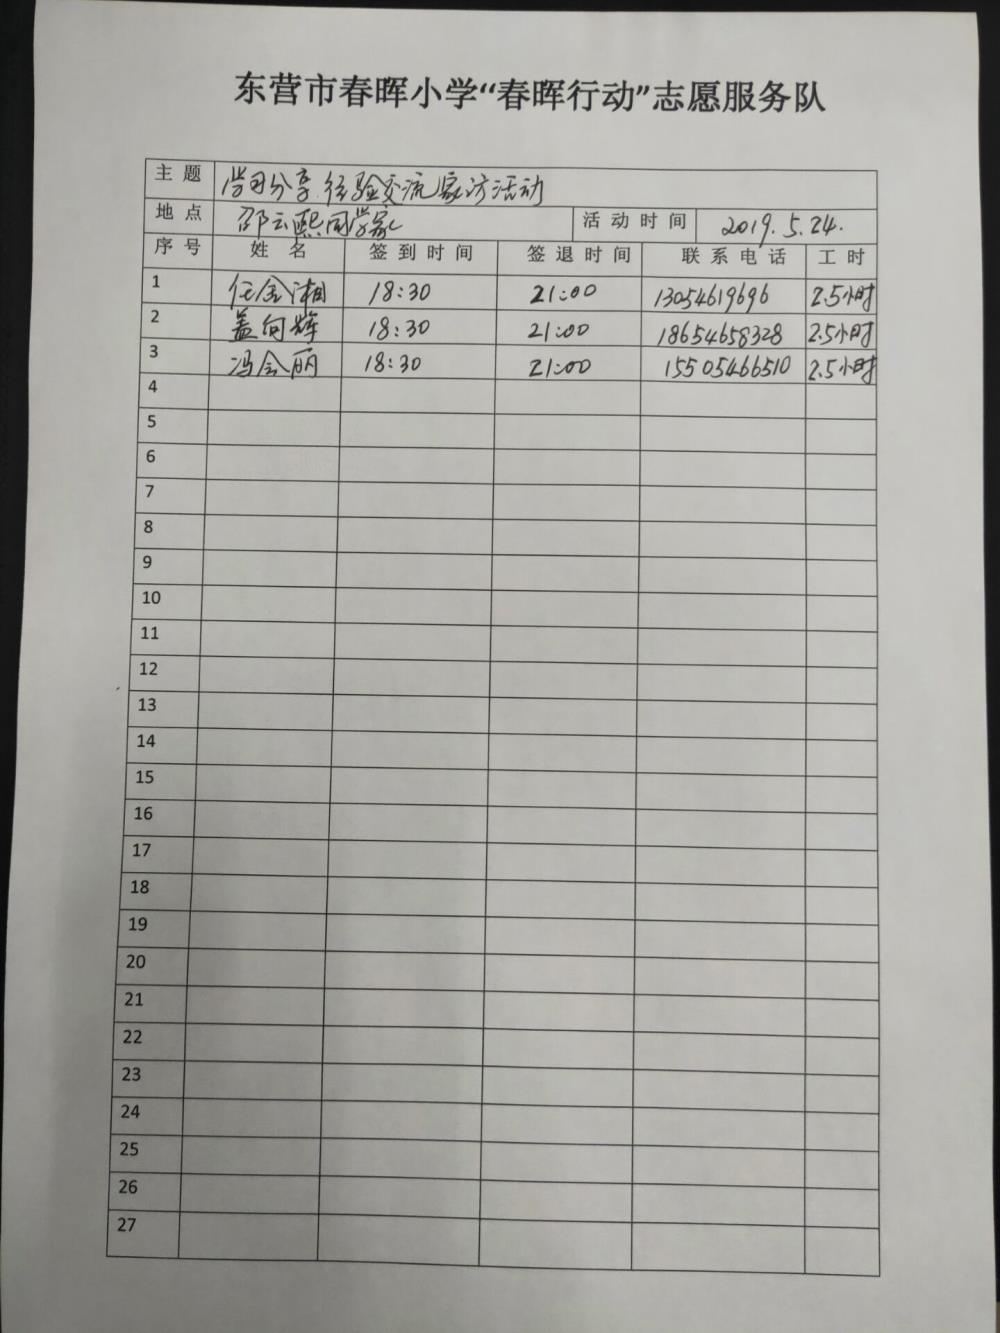 东营市春晖小学“春晖行动”志愿服务队
主题 学习分享.经验交流家访活动
地点 邵云熙同学家 活动时间 2019.5.24.
序号 姓名 签到时间 签退时间 联系电话 工时
1 任金湘 18:30 21:00 13054619696 2.5小时
2 盖向辉 18:30 21:00 18654658328 2.5小时
3 冯会丽 18:30 21:00 15505466510 2.5小时
4
5
6
7
8
9
10
11
12
13
14
15
16
17
18
19
20
21
22
23
24
25
26
27